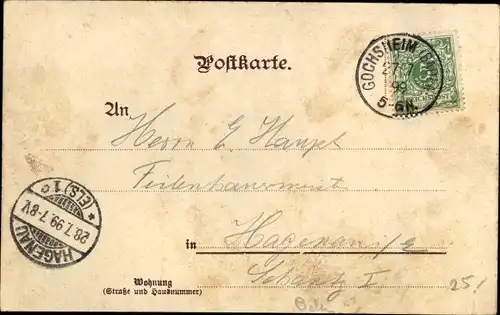 Postkarte.
GOCHSHEIM
27
99
5-6N.
5
An
Herrn E Haupt
in Hagenau i/E
HAGENAU
28.7.99.7-8V.
* (ELS) 1 c
Wohnung
(Straße und Hausnummer)
25!